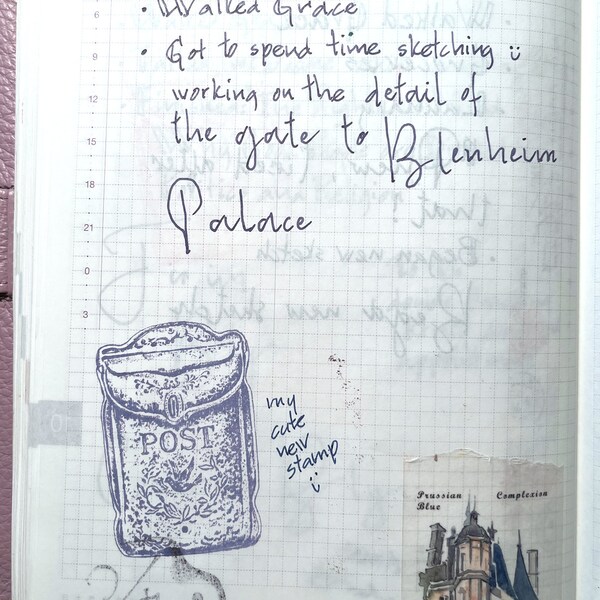 6
• Walked Grace
9
• Got to spend time sketching ü
12
working on the detail of
15
the gate to Blenheim
18
Palace
21
0
3
POST
my
cute
new
stamp
ü
Prussian Complexion
Blue